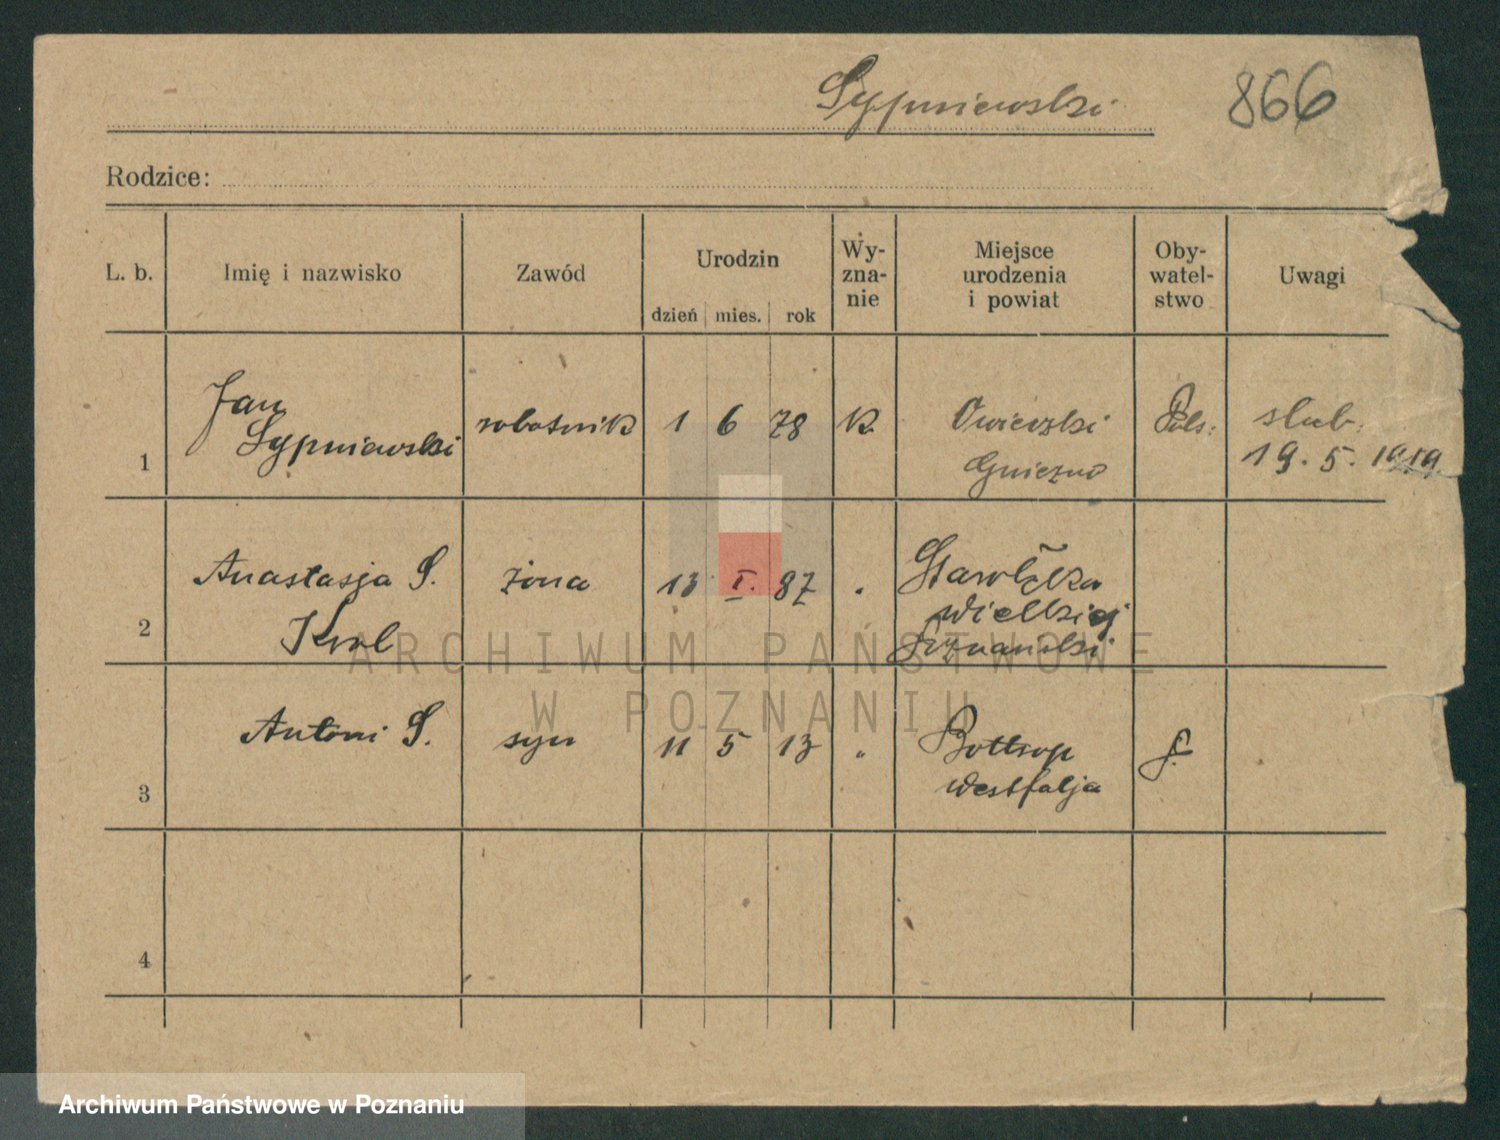 Sypniewski 866
Rodzice:
L. b. Imię i nazwisko Zawód Urodzin dzień mies. rok Wy-zna-nie Miejsce urodzenia i powiat Oby-watel-stwo Uwagi
1 Jan Sypniewski robotnik 1 6 78 k. Owieczki Gniezno Pols: slub. 19. 5. 1919.
2 Anastasja S. Krol żona 13 I. 87 Starołęka wielkiej Poznański
3 Antoni S. syn 11 5 13 " Bottrop Westfalja
4
ARCHIWUM PAŃSTWOWE
W POZNANIU
Archiwum Państwowe w Poznaniu